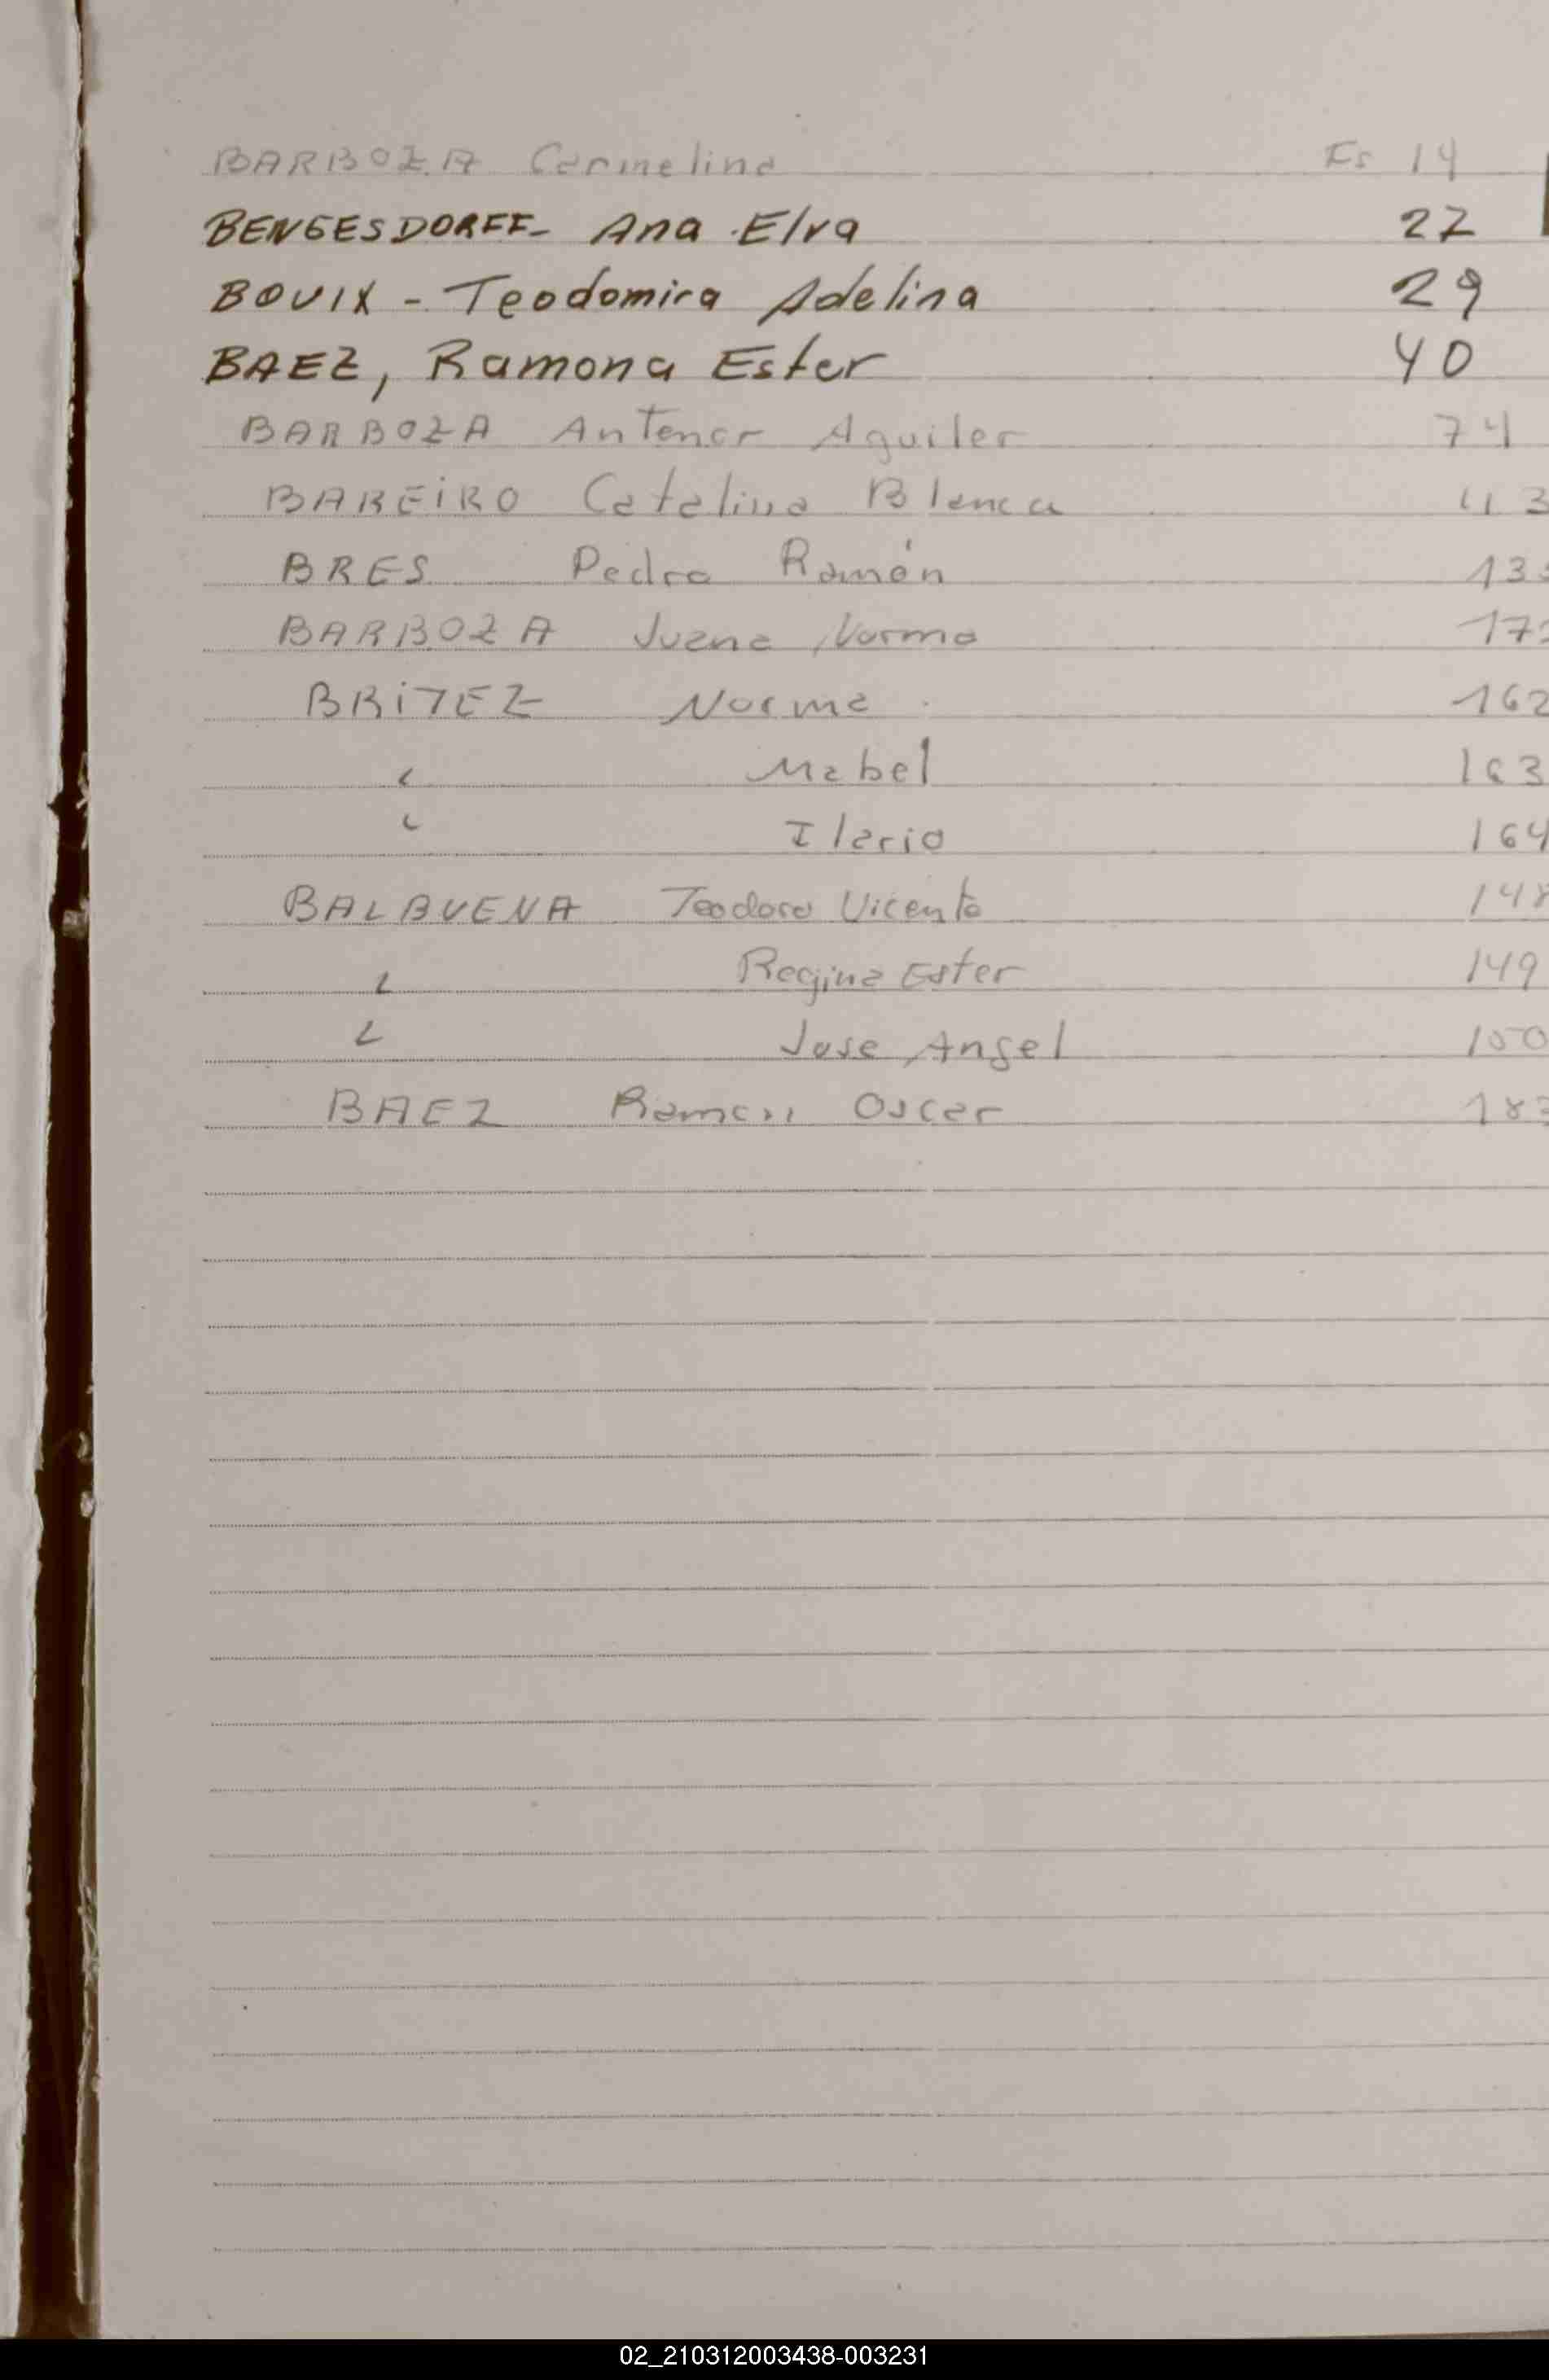 BARBOZA Carmelina Fs 14
BENGESDORFF- Ana Elva 22
BOUIX - Teodomira Adelina 29
BAEZ, Ramona Ester 40
BARBOZA Antenor Aguilar 74
BAREIRO Catalina Blanca
BRES Pedro Ramón
BARBOZA Juana Norma
BRITEZ Norma 162
" Mabel 163
" Ilario 164
BALBUENA Teodoro Vicente 148
" Regina Ester 149
" Jose Angel 150
BAEZ Ramon Oscar
02_210312003438-003231